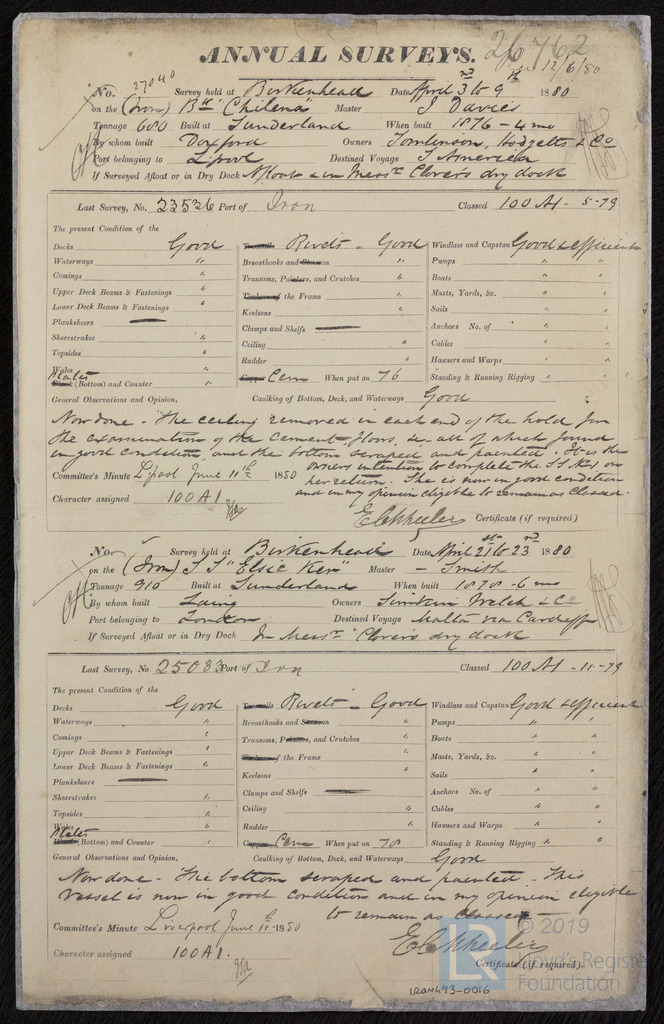 ANNUAL SURVEYS. 26762
12/6/80
No. 27040 Survey held at Birkenhead Date April 3rd to 9th 1880
on the (Iron) Bk "Chilena" Master J Davies
Tonnage 680 Built at Sunderland When built 1876 - 4 mo
By whom built Doxford Owners Tomlinson, Hodgetts & Co
Port belonging to L'pool Destined Voyage S America
If Surveyed Afloat or in Dry Dock Afloat & in Messrs Clover's dry dock
Last Survey, No. 23526 Port of Iron Classed 100 A1 - 5-79
The present Condition of the
Decks Good Rivets - Good Windlass and Capstan Good & efficient
Waterways " Breasthooks and " Pumps " "
Comings " Transoms, Pointers, and Crutches " Boats " "
Upper Deck Beams & Fastenings " of the Frame " Masts, Yards, &c. " "
Lower Deck Beams & Fastenings " Keelsons " Sails " "
Planksheers — Clamps and Shelfs — Anchors No. of " "
Sheerstrakes " Ceiling " Cables " "
Topsides " Rudder " Hawsers and Warps " "
Wales
Plates (Bottom) and Counter " Copper Cem When put on 76 Standing & Running Rigging " "
General Observations and Opinion, Caulking of Bottom, Deck, and Waterways Good
Now done - The ceiling removed in each end of the hold for
the examination of the cement, floors, &c. all of which found
in good condition, and the bottom scraped and painted. It is the
owners intention to complete the SS No1 on
Committee's Minute L'pool June 11th 1880 her return. She is now in good condition
and in my opinion eligible to remain as Classed.
Character assigned 100 A1
E C Wheeler
Certificate (if required)
No. Survey held at Birkenhead Date April 21st to 23rd 1880
on the (Iron) S S "Elsie Ker" Master - Smith
Tonnage 910 Built at Sunderland When built 1878 - 6 mo
By whom built Laing Owners Simkin Welch & Co
Port belonging to London Destined Voyage Malta via Cardiff
If Surveyed Afloat or in Dry Dock In Messrs Clover's dry dock
Last Survey, No. 25033 Port of Iron Classed 100 A1 - 11-79
The present Condition of the
Decks Good Rivets - Good Windlass and Capstan Good & efficient
Waterways " Breasthooks and " Pumps " "
Comings " Transoms, Pointers, and Crutches " Boats " "
Upper Deck Beams & Fastenings " of the Frame " Masts, Yards, &c. " "
Lower Deck Beams & Fastenings " Keelsons " Sails " "
Planksheers — Clamps and Shelfs — Anchors No. of " "
Sheerstrakes " Ceiling " Cables " "
Topsides " Rudder " Hawsers and Warps " "
Wales
Plates (Bottom) and Counter " Copper Cem When put on 78 Standing & Running Rigging " "
General Observations and Opinion, Caulking of Bottom, Deck, and Waterways Good
Now done - The bottom scraped and painted - This
vessel is now in good condition and in my opinion eligible
to remain as classed
Committee's Minute Liverpool June 11th 1880
E C Wheeler
Character assigned 100 A1.
Certificate (if required).
© 2019
LR Lloyd's Register
Foundation
IRON493-0016